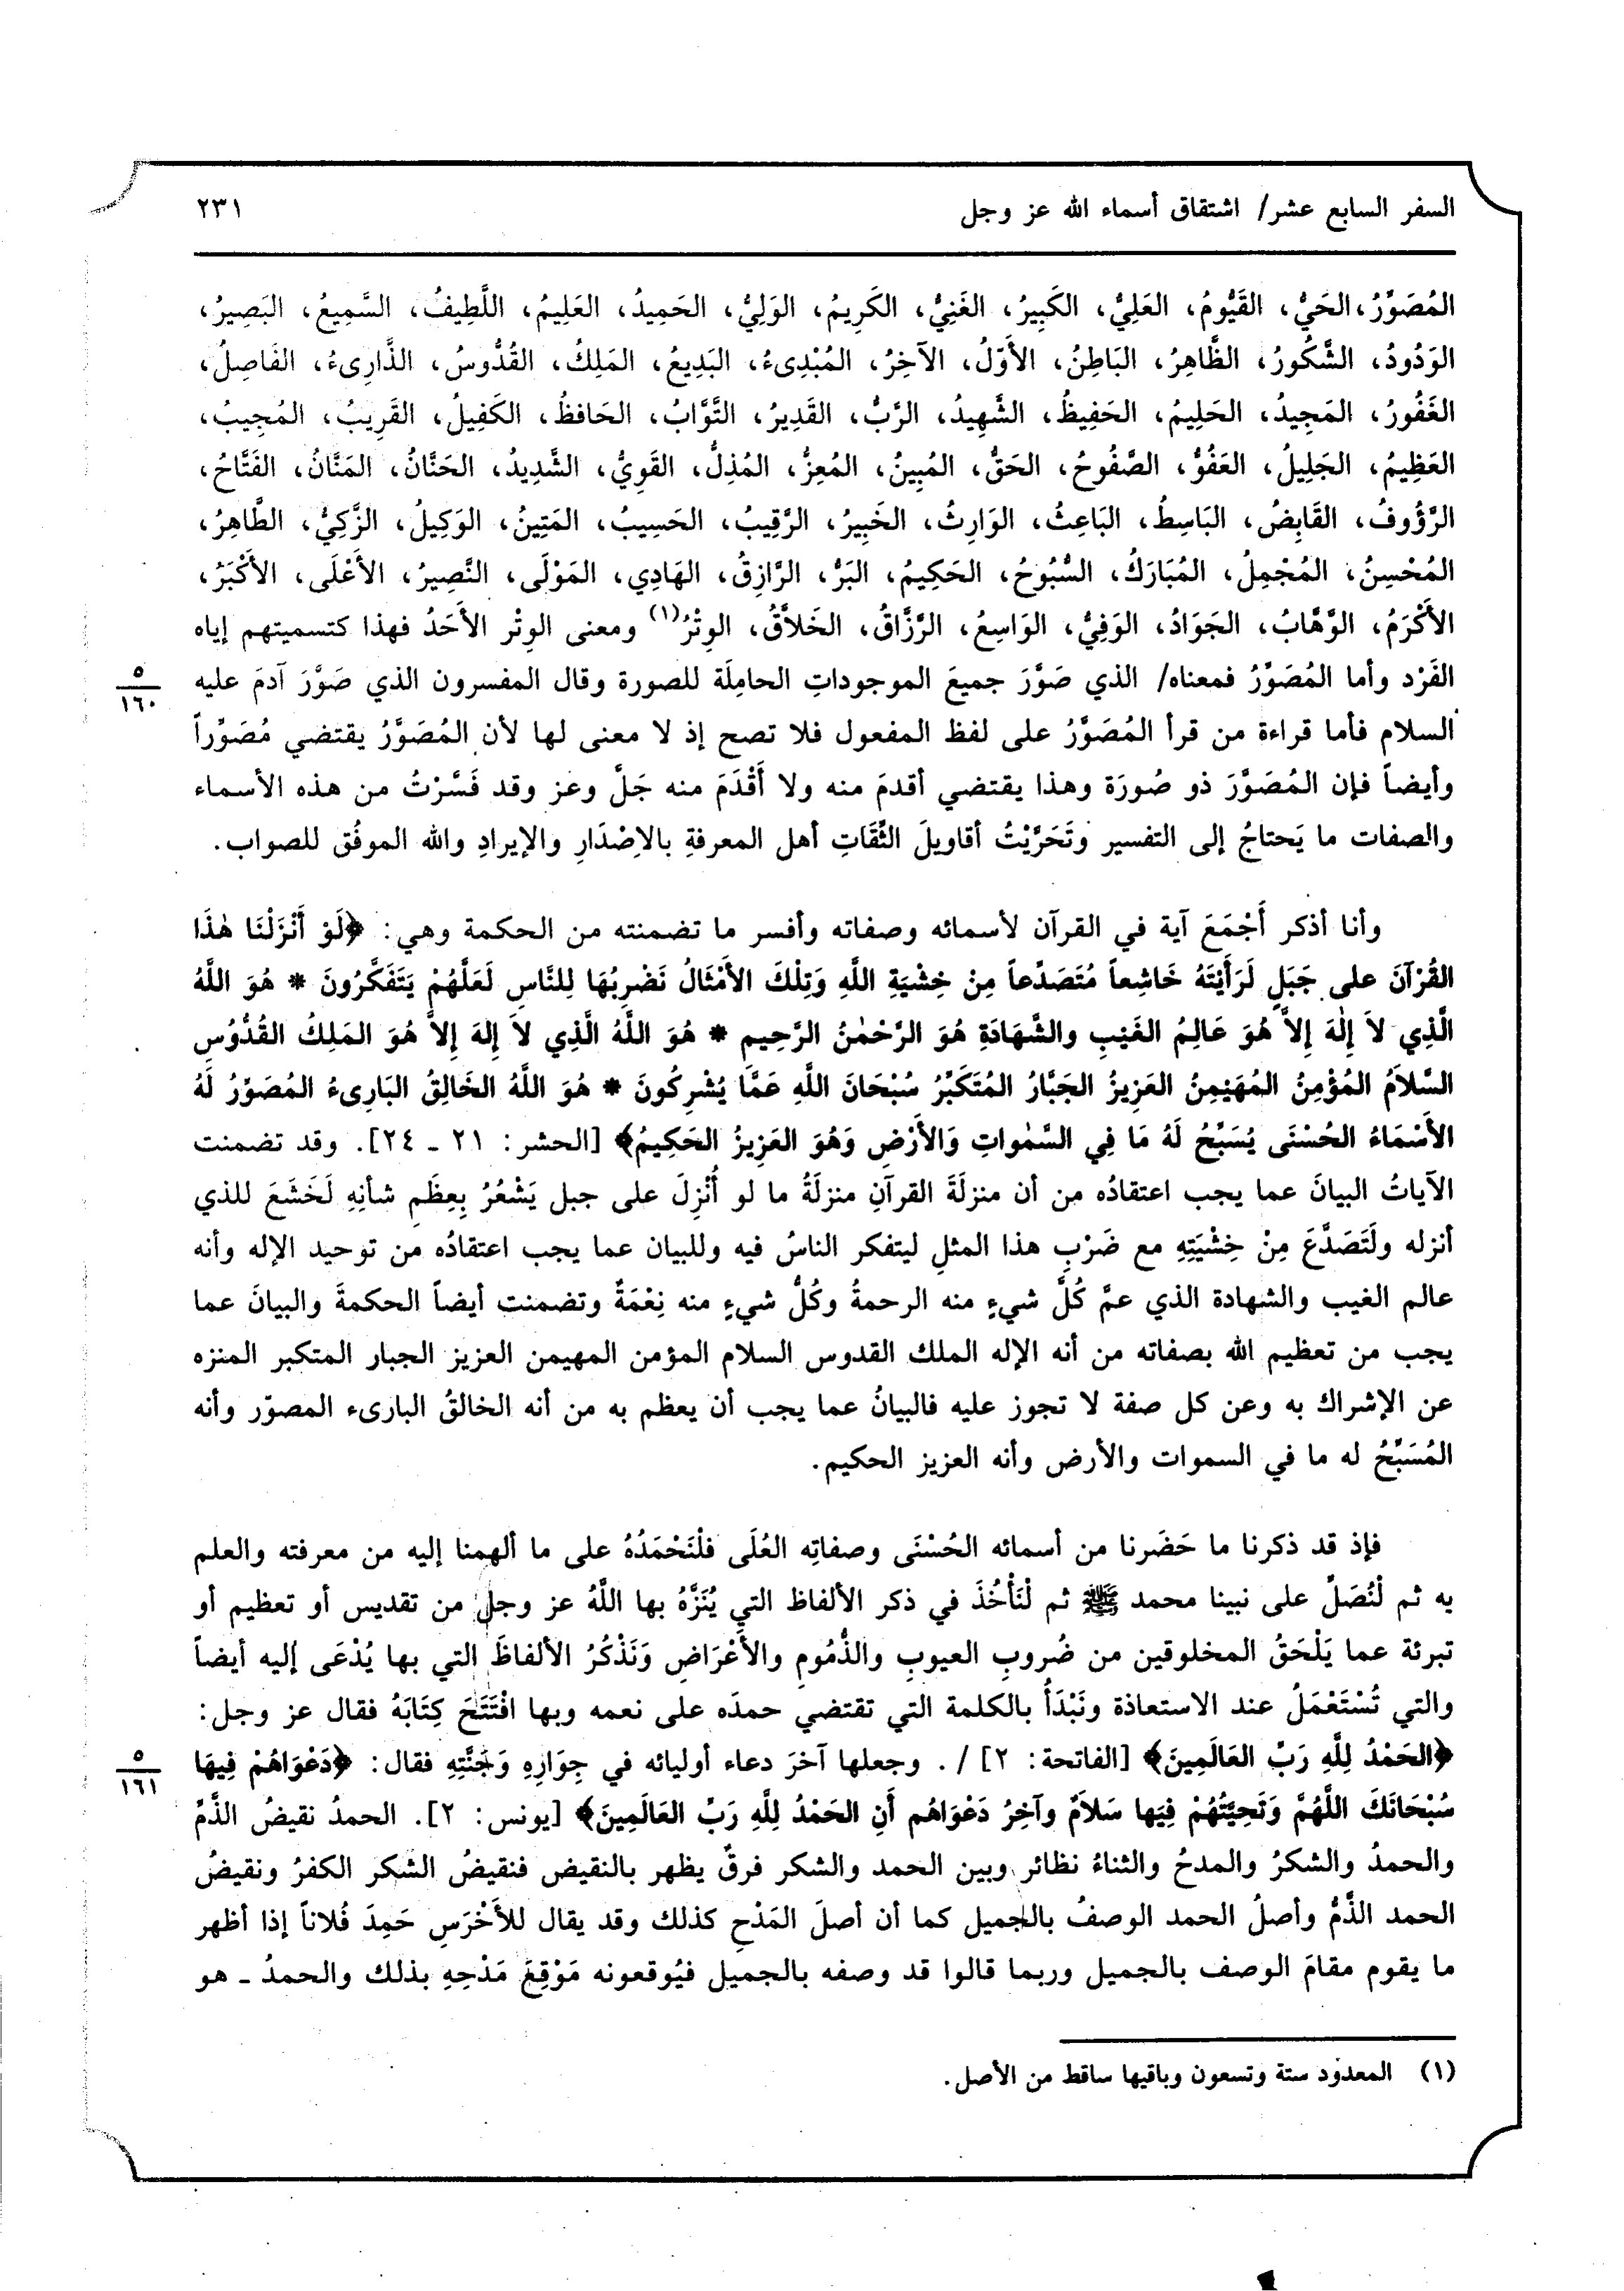 السفر السابع عشر/ اشتقاق أسماء الله عز وجل
٢٣١
المُصَوِّرُ، الحَيُّ، القَيُّومُ، العَلِيُّ، الكَبِيرُ، الغَنِيُّ، الكَرِيمُ، الوَلِيُّ، الحَمِيدُ، العَلِيمُ، اللَّطِيفُ، السَّمِيعُ، البَصِيرُ،
الوَدُودُ، الشَّكُورُ، الظَّاهِرُ، البَاطِنُ، الأَوّلُ، الآخِرُ، المُبْدِىءُ، البَدِيعُ، المَلِكُ، القُدُّوسُ، الذَّارِىءُ، الفَاصِلُ،
الغَفُورُ، المَجِيدُ، الحَلِيمُ، الحَفِيظُ، الشَّهِيدُ، الرَّبُّ، القَدِيرُ، التَّوَّابُ، الحَافظُ، الكَفِيلُ، القَرِيبُ، المُجِيبُ،
العَظِيمُ، الجَلِيلُ، العَفُوُّ، الصَّفُوحُ، الحَقُّ، المُبِينُ، المُعِزُّ، المُذِلُّ، القَوِيُّ، الشَّدِيدُ، الحَنَّانُ، المَنَّانُ، الفَتَّاحُ،
الرَّؤُوفُ، القَابِضُ، البَاسِطُ، البَاعِثُ، الوَارِثُ، الخَبِيرُ، الرَّقِيبُ، الحَسِيبُ، المَتِينُ، الوَكِيلُ، الزَّكِيُّ، الطَّاهِرُ،
المُحْسِنُ، المُجْمِلُ، المُبَارَكُ، السُّبُوحُ، الحَكِيمُ، البَرُّ، الرَّازِقُ، الهَادِي، المَوْلَى، النَّصِيرُ، الأَعْلَى، الأَكْبَرُ،
الأَكْرَمُ، الوَهَّابُ، الجَوَادُ، الوَفِيُّ، الوَاسِعُ، الرَّزَّاقُ، الخَلاَّقُ، الوِتْرُ(١) ومعنى الوِتْر الأَحَدُ فهذا كتسميتهم إياه
الفَرْد وأما المُصَوِّرُ فمعناه/ الذي صَوَّرَ جميعَ الموجوداتِ الحامِلَة للصورة وقال المفسرون الذي صَوَّرَ آدمَ عليه
٥
١٦٠
السلام فأما قراءة من قرأ المُصَوَّرُ على لفظ المفعول فلا تصح إذ لا معنى لها لأن المُصَوَّرُ يقتضي مُصَوِّراً
وأيضاً فإن المُصَوَّرَ ذو صُورَة وهذا يقتضي أقدمَ منه ولا أَقْدَمَ منه جَلَّ وعز وقد فَسَّرْتُ من هذه الأسماء
والصفات ما يَحتاجُ إلى التفسير وتَحَرَّيْتُ أقاويلَ الثِّقَاتِ أهل المعرفةِ بالاِصْدَارِ والإيرادِ والله الموفِّق للصواب.
وأنا أذكر أَجْمَعَ آية في القرآن لأسمائه وصفاته وأفسر ما تضمنته من الحكمة وهي: ﴿لَوْ أَنْزَلْنَا هٰذَا
القُرْآنَ على جَبَلٍ لَرَأَيْتَهُ خَاشِعاً مُتَصَدِّعاً مِنْ خِشْيَةِ اللَّهِ وَتِلْكَ الأَمْثَالُ نَضْرِبُهَا لِلنَّاسِ لَعَلَّهُمْ يَتَفَكَّرُونَ * هُوَ اللَّهُ
الَّذِي لاَ إِلٰهَ إِلاَّ هُوَ عَالِمُ الغَيْبِ والشَّهَادَةِ هُوَ الرَّحْمٰنُ الرَّحِيم * هُوَ اللَّهُ الَّذِي لاَ إِلهَ إِلاَّ هُوَ المَلِكُ القُدُّوُس
السَّلاَمُ المُؤْمِنُ المُهَيْمِنُ العَزِيزُ الجَبَّارُ المُتَكَبِّرُ سُبْحَانَ اللَّهِ عَمَّا يُشْرِكُونَ * هُوَ اللَّهُ الخَالِقُ البَارِىءُ المُصَوِّرُ لَهُ
الأَسْمَاءُ الحُسْنَى يُسَبِّحُ لَهُ مَا فِي السَّمٰواتِ وَالأَرْضِ وَهُوَ العَزِيزُ الحَكِيمُ﴾ [الحشر: ٢١ ـ ٢٤]. وقد تضمنت
الآياتُ البيانَ عما يجب اعتقادُه من أن منزلَةَ القرآنِ منزلَةُ ما لو أُنْزِلَ على جبل يَشْعُرُ بِعِظَمِ شأنِهِ لَخَشَعَ للذي
أنزله ولَتَصَدَّعَ مِنْ خِشْيَتِهِ مع ضَرْبِ هذا المثلِ ليتفكر الناسُ فيه وللبيان عما يجب اعتقادُه من توحيد الإله وأنه
عالم الغيب والشهادة الذي عمَّ كُلَّ شيءٍ منه الرحمةُ وكُلُّ شيءٍ منه نِعْمَةٌ وتضمنت أيضاً الحكمةَ والبيانَ عما
يجب من تعظيم الله بصفاته من أنه الإله الملك القدوس السلام المؤمن المهيمن العزيز الجبار المتكبر المنزه
عن الإشراك به وعن كل صفة لا تجوز عليه فالبيانُ عما يجب أن يعظم به من أنه الخالقُ البارىء المصوّر وأنه
المُسَبِّحُ له ما في السموات والأرض وأنه العزيز الحكيم.
فإذ قد ذكرنا ما حَضَرنا من أسمائه الحُسْنَى وصفاتِه العُلَى فلْنَحْمَدُهُ على ما ألهمنا إليه من معرفته والعلم
به ثم لْنُصَلِّ على نبينا محمد ﷺ ثم لْنَأْخُذَ في ذكر الألفاظ التي يُنَزَّهُ بها اللَّهُ عز وجل من تقديس أو تعظيم أو
تبرئة عما يَلْحَقُ المخلوقين من ضُروبِ العيوبِ والذُّمُومِ والأَعْرَاضِ وَنَذْكُرُ الألفاظَ التي بها يُدْعَى إليه أيضاً
والتي تُسْتَعْمَلُ عند الاستعاذة ونَبْدَأُ بالكلمة التي تقتضي حمدَه على نعمه وبها افْتَتَحَ كِتَابَهُ فقال عز وجل:
﴿الحَمْدُ لِلَّهِ رَبِّ العَالَمِينَ﴾ [الفاتحة: ٢] /. وجعلها آخرَ دعاء أوليائه في جِوَارِهِ وَجَنَّتِهِ فقال: ﴿دَعْوَاهُمْ فِيهَا
٥
١٦١
سُبْحَانَكَ اللَّهُمَّ وَتَحِيَّتُهُمْ فِيَها سَلاَمٌ وآخِرُ دَعْوَاهُم أَنِ الحَمْدُ لِلَّهِ رَبِّ العَالَمِينَ﴾ [يونس: ٢]. الحمدُ نقيضُ الذَّمِّ
والحمدُ والشكرُ والمدحُ والثناءُ نظائر وبين الحمد والشكر فرقٌ يظهر بالنقيض فنقيضُ الشكر الكفرُ ونقيضُ
الحمد الذَّمُّ وأصلُ الحمد الوصفُ بالجميل كما أن أصلَ المَدْحِ كذلك وقد يقال للأَخْرَسِ حَمِدَ فُلاناً إذا أظهر
ما يقوم مقامَ الوصف بالجميل وربما قالوا قد وصفه بالجميل فيُوقعونه مَوْقِعَ مَدْحِهِ بذلك والحمدُ ـ هو
(١) المعدود ستة وتسعون وباقيها ساقط من الأصل.